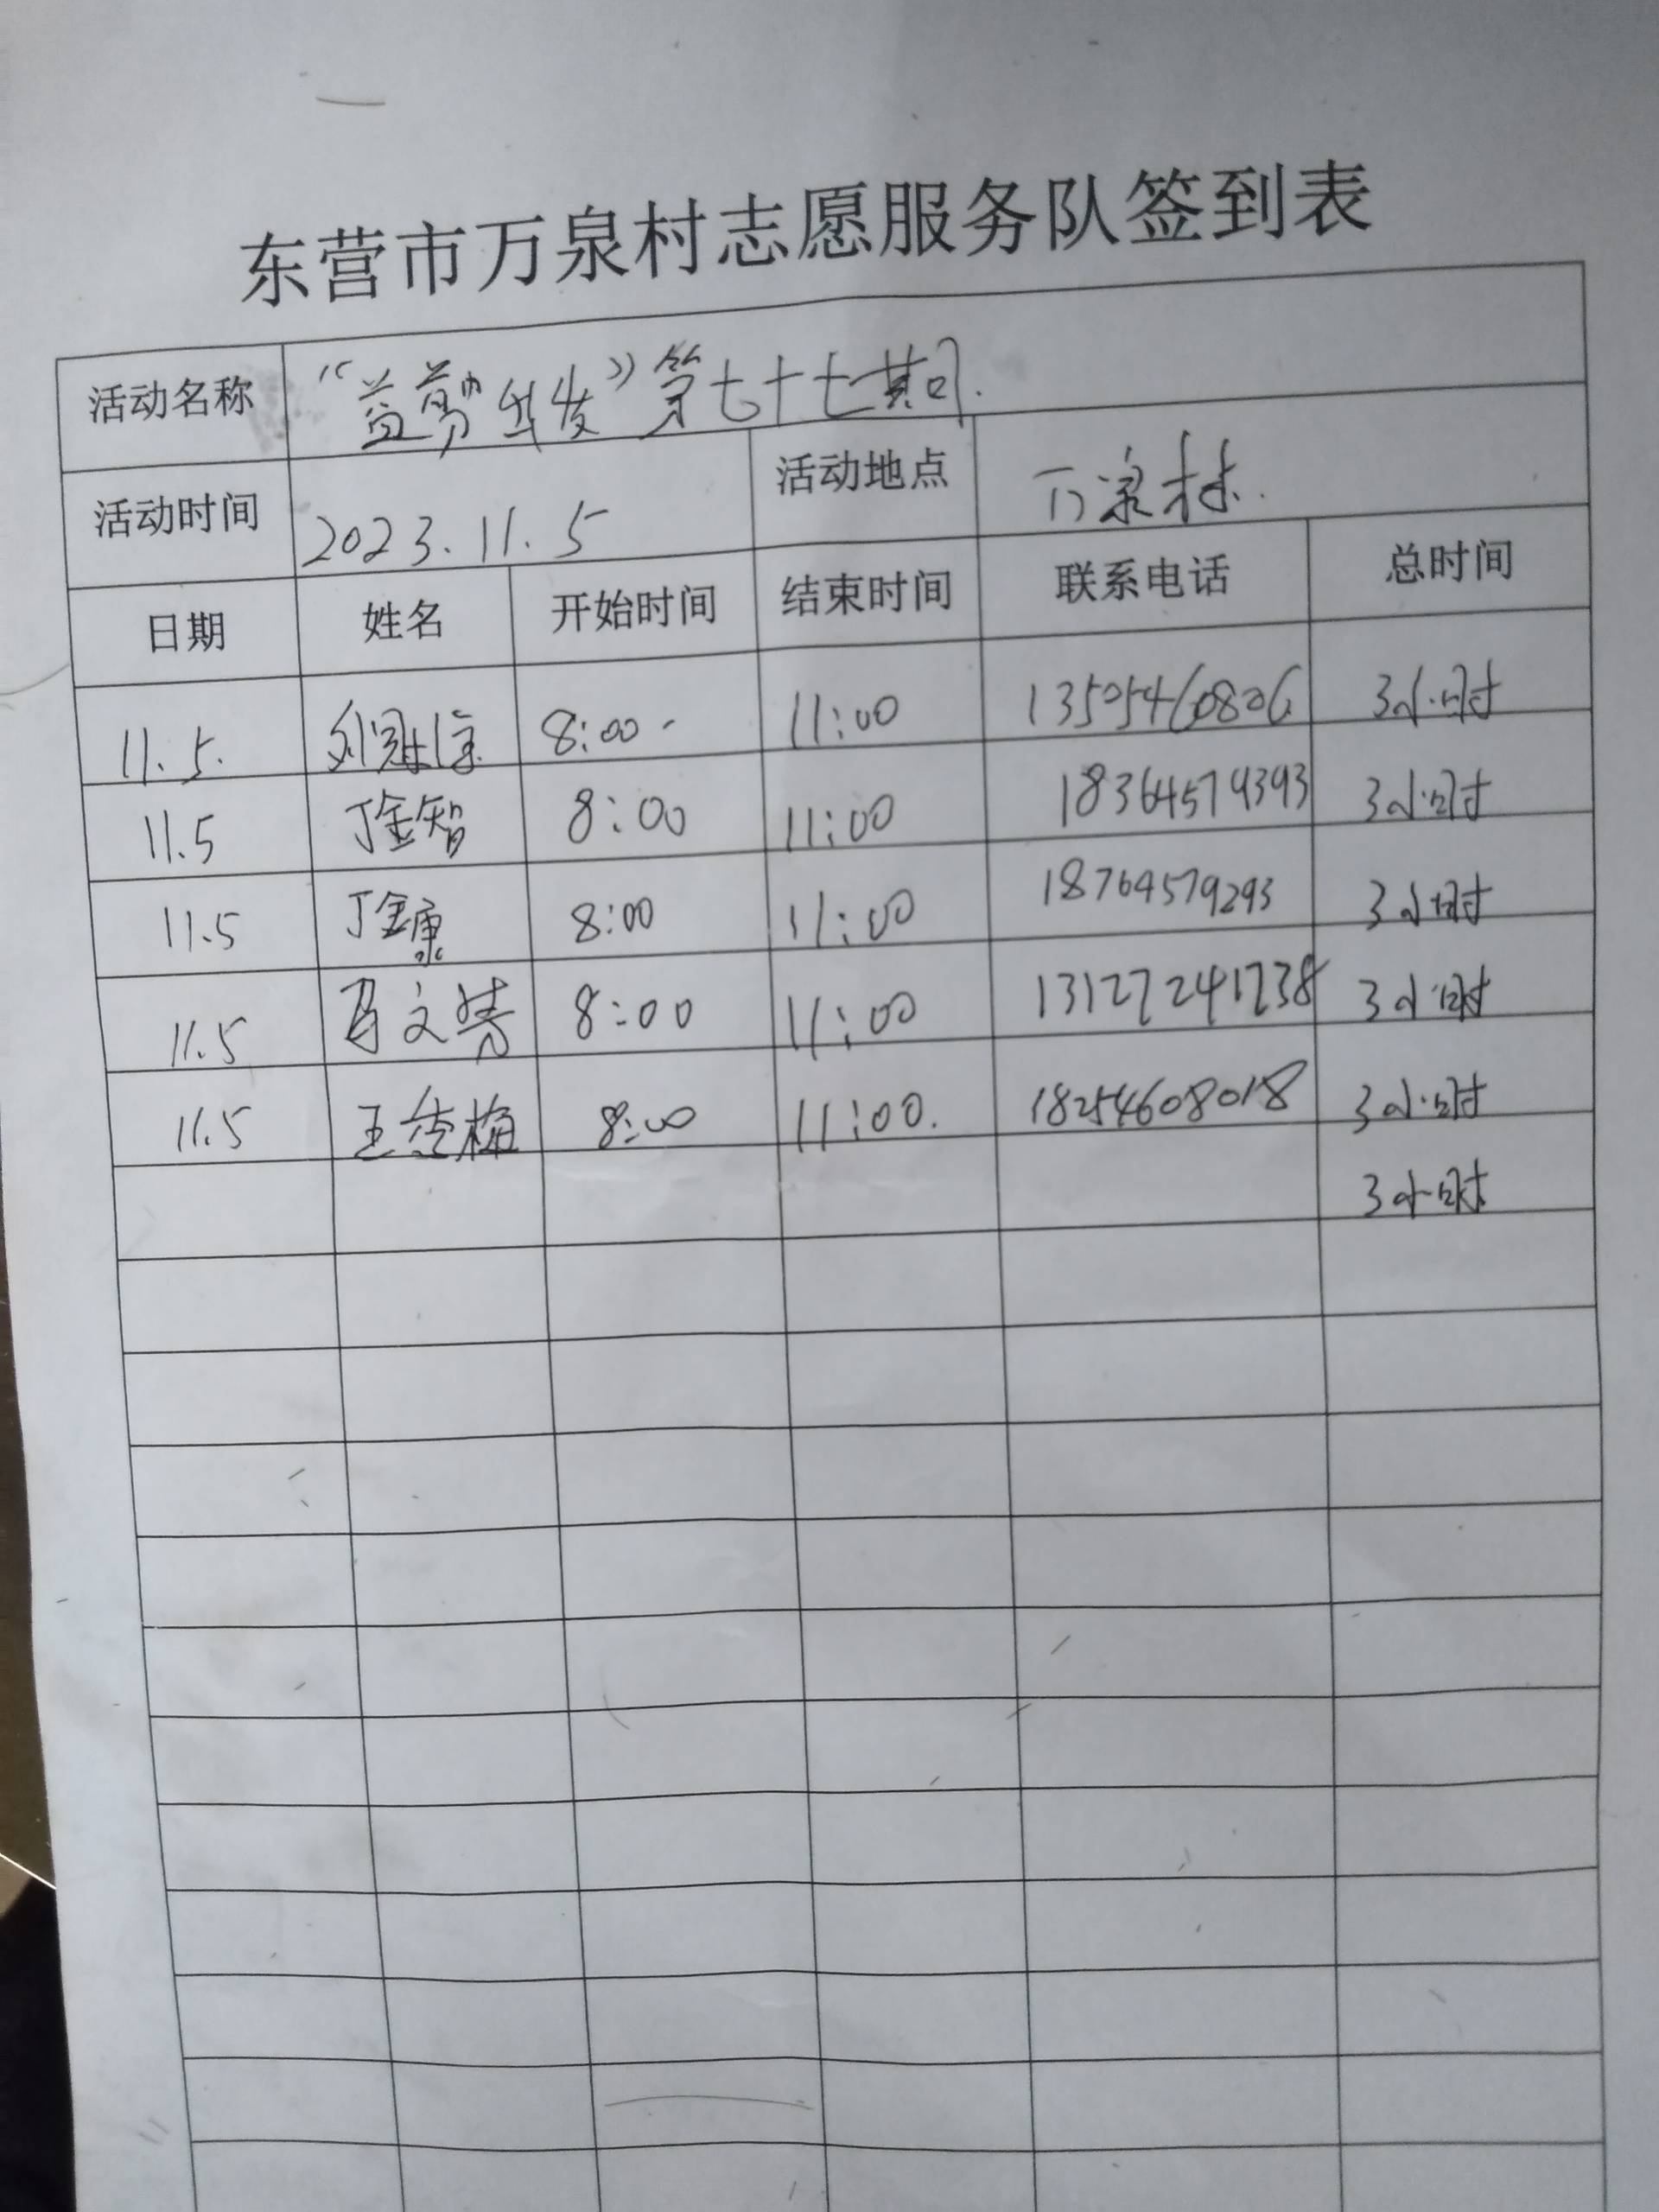 东营市万泉村志愿服务队签到表
活动名称 “益剪华发”第七十七期.
活动时间 2023.11.5 活动地点 万泉村.
日期 姓名 开始时间 结束时间 联系电话 总时间
11.5. 8:00 11:00 13505460806 3小时
11.5 丁金智 8:00 11:00 18364579393 3小时
11.5 丁金康 8:00 11:00 18764579293 3小时
11.5 8:00 11:00 13127241738 3小时
11.5 8:00 11:00. 18254608018 3小时
3小时